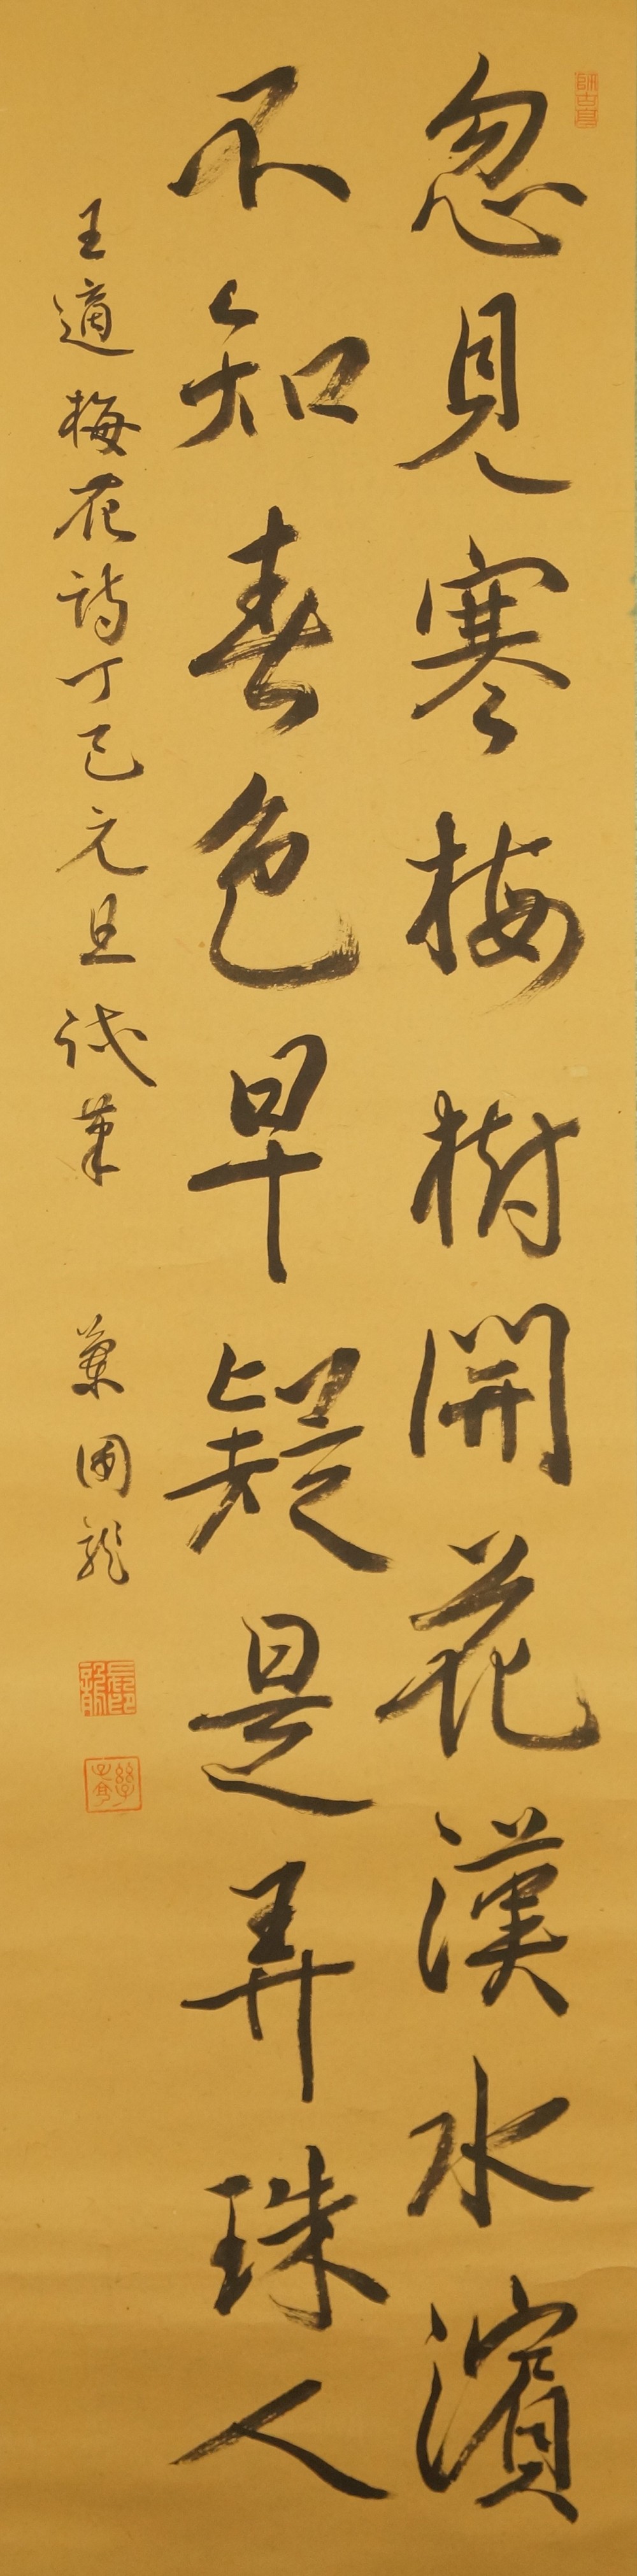 忽見寒梅樹開花漢水濱
不知春色早疑是弄珠人
王適梅花詩丁巳元旦試筆
師古員